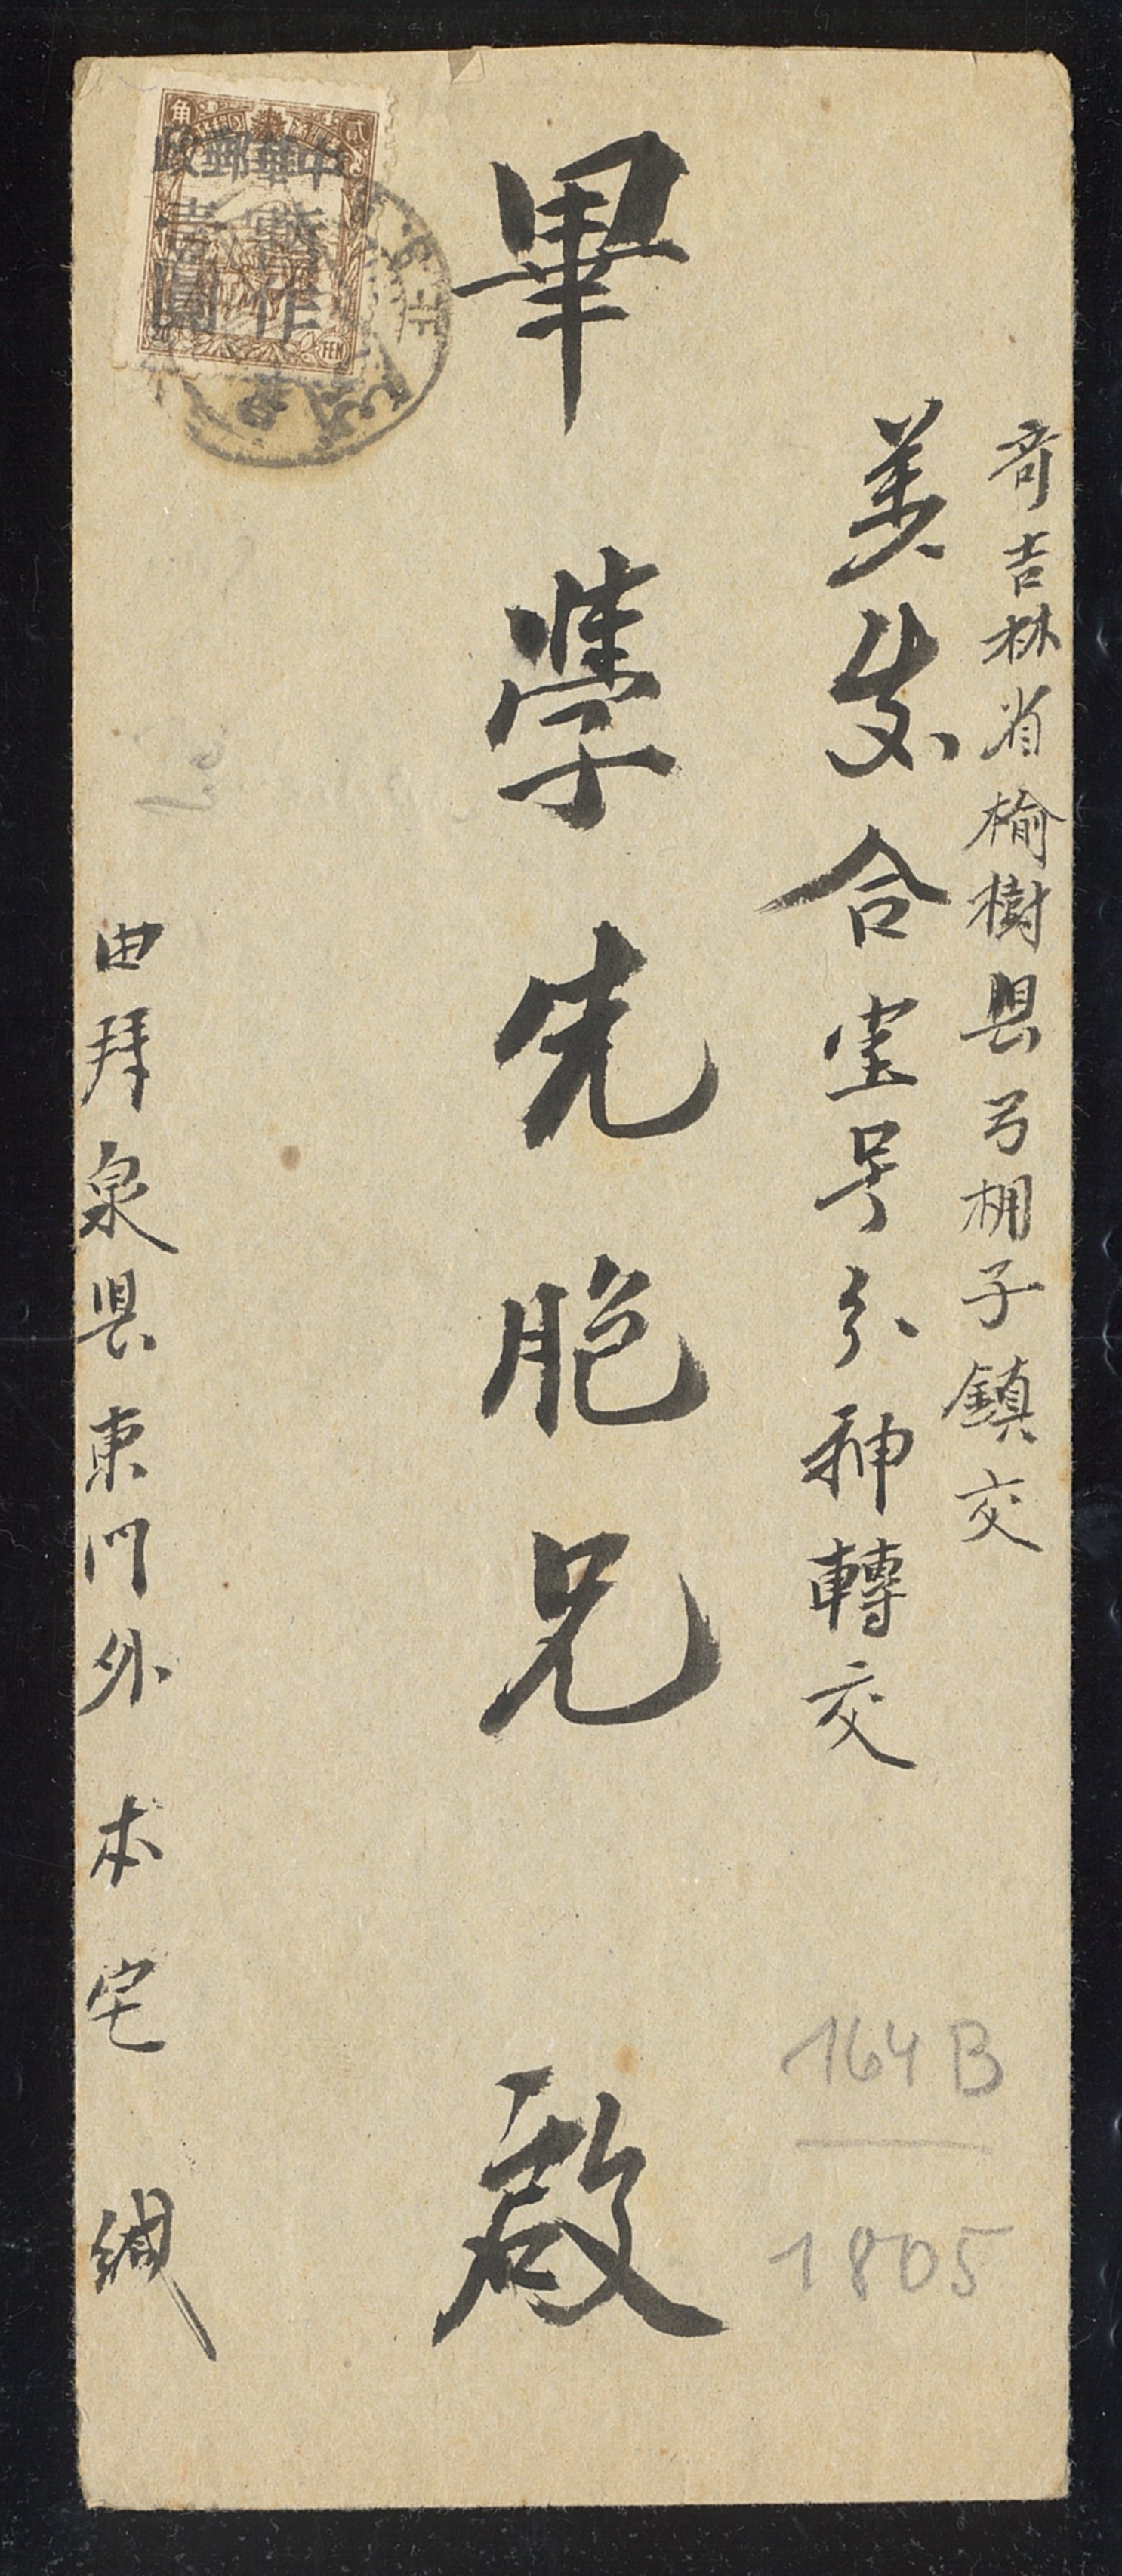 寄吉林省榆樹县弓棚子鎮交
美发合宝号分神轉交
畢學先胞兄 啟
由拜泉县東门外 本宅 緘
中華郵政
暫作
壹圓
貳角
20 FEN
164 B
1805